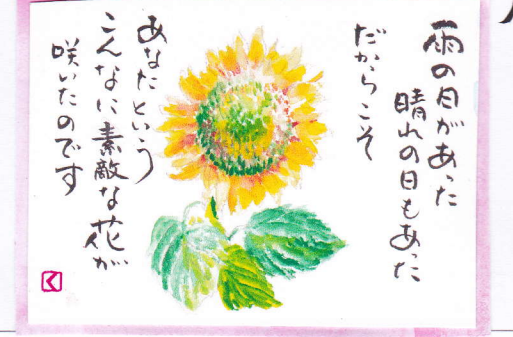 雨の日があった
晴れの日もあった
だからこそ
あなたという
こんなに素敵な花が
咲いたのです
く